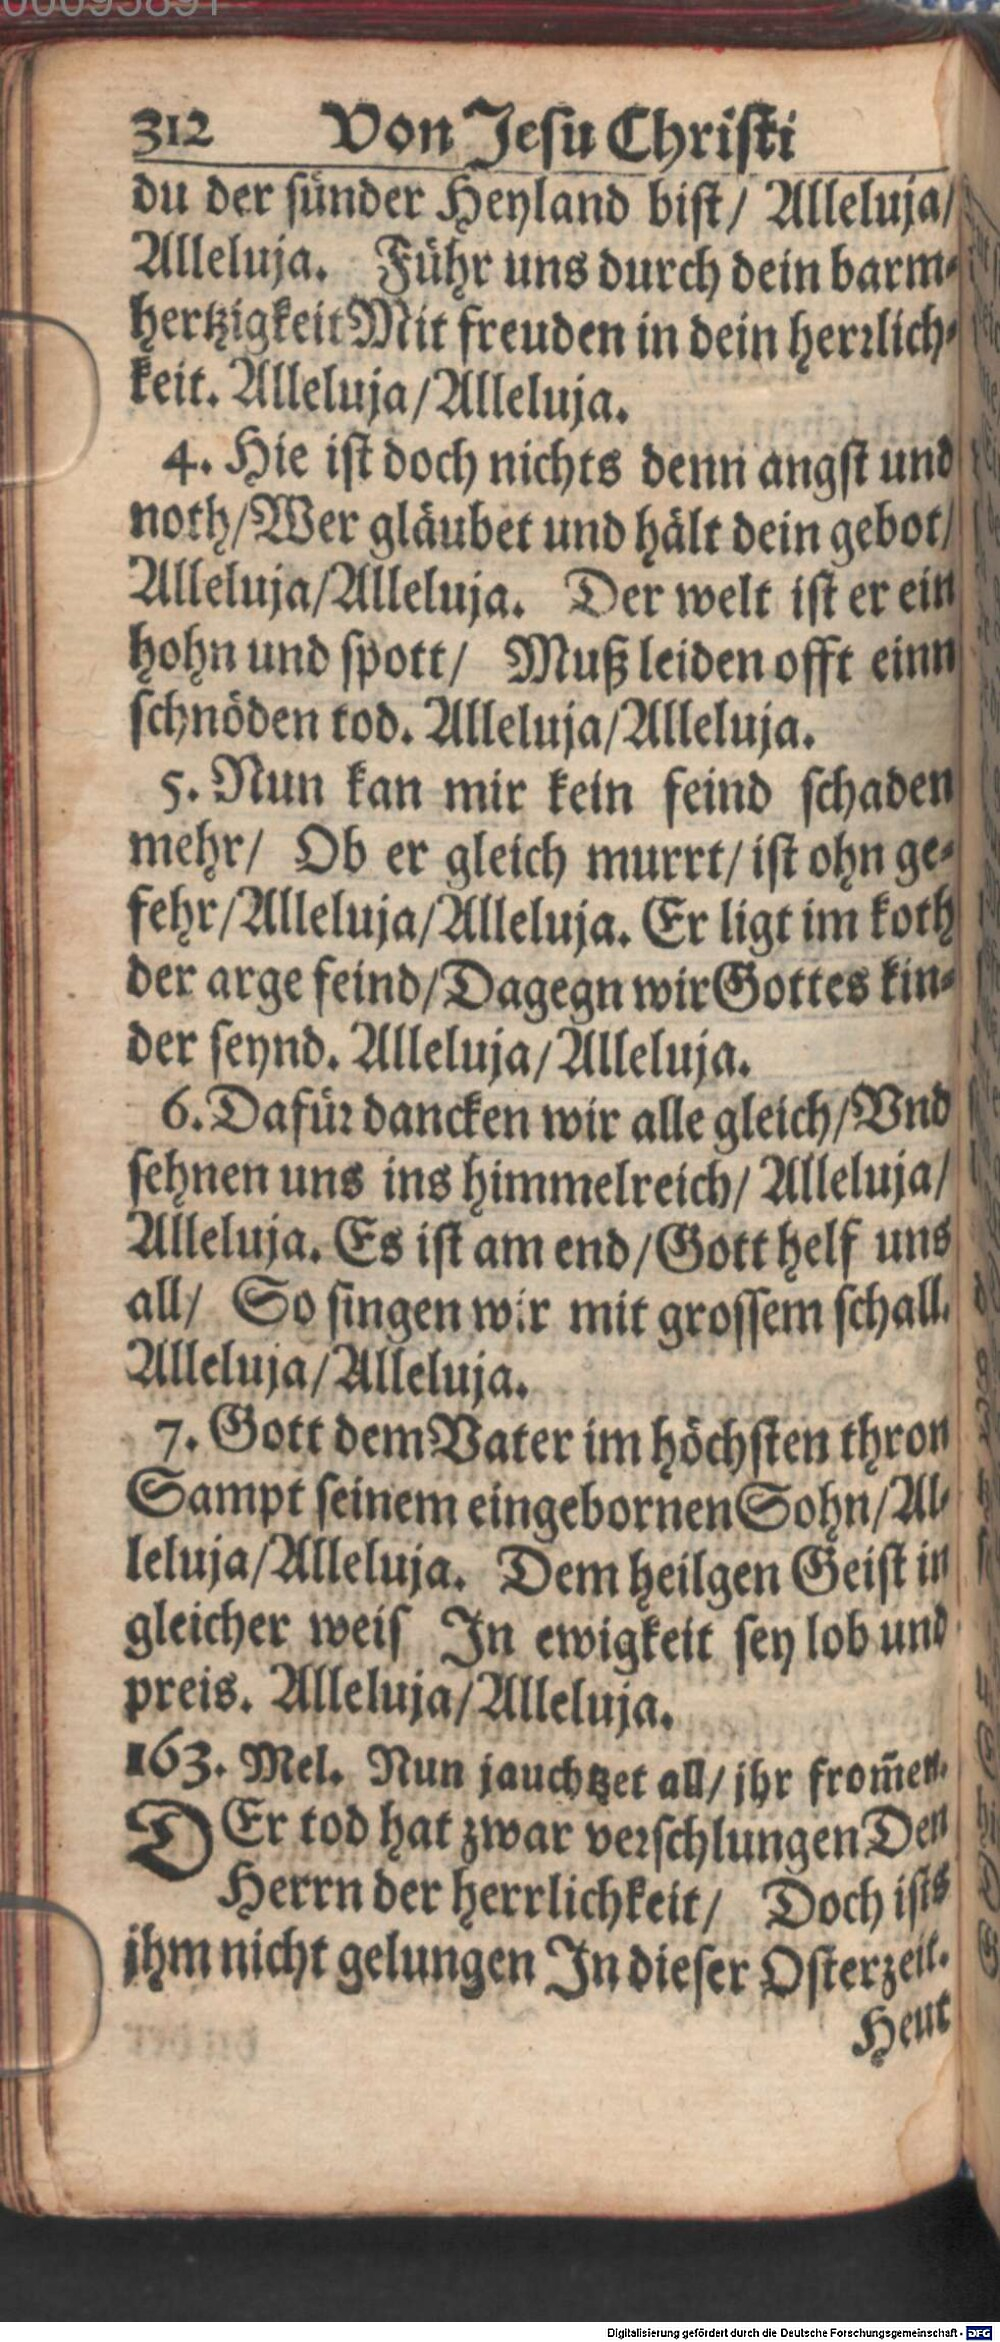 00095891
312 Von Jesu Christi
du der sünder Heyland bist/ Alleluja/
Alleluja. Führ uns durch dein barm-
hertzigkeit Mit freuden in dein herrlich-
keit. Alleluja/Alleluja.
4. Hie ist doch nichts denn angst und
noth/Wer gläubet und hält dein gebot/
Alleluja/Alleluja. Der welt ist er ein
hohn und spott/ Muß leiden offt einn
schnöden tod. Alleluja/Alleluja.
5. Nun kan mir kein feind schaden
mehr/ Ob er gleich murrt/ist ohn ge-
fehr/Alleluja/Alleluja. Er ligt im koth
der arge feind/Dagegn wir Gottes kin-
der seynd. Alleluja/Alleluja.
6. Dafür dancken wir alle gleich/Vnd
sehnen uns ins himmelreich/ Alleluja/
Alleluja. Es ist am end/Gott helf uns
all/ So singen wir mit grossem schall.
Alleluja/Alleluja.
7. Gott dem Vater im höchsten thron
Sampt seinem eingebornen Sohn/Al-
leluja/Alleluja. Dem heilgen Geist in
gleicher weis In ewigkeit sey lob und
preis. Alleluja/Alleluja.
163. Mel. Nun jauchtzet all/ jhr from̄en.
DEr tod hat zwar verschlungen Den
Herrn der herrlichkeit/ Doch ists
jhm nicht gelungen In dieser Osterzeit.
Heut
Digitalisierung gefördert durch die Deutsche Forschungsgemeinschaft - DFG